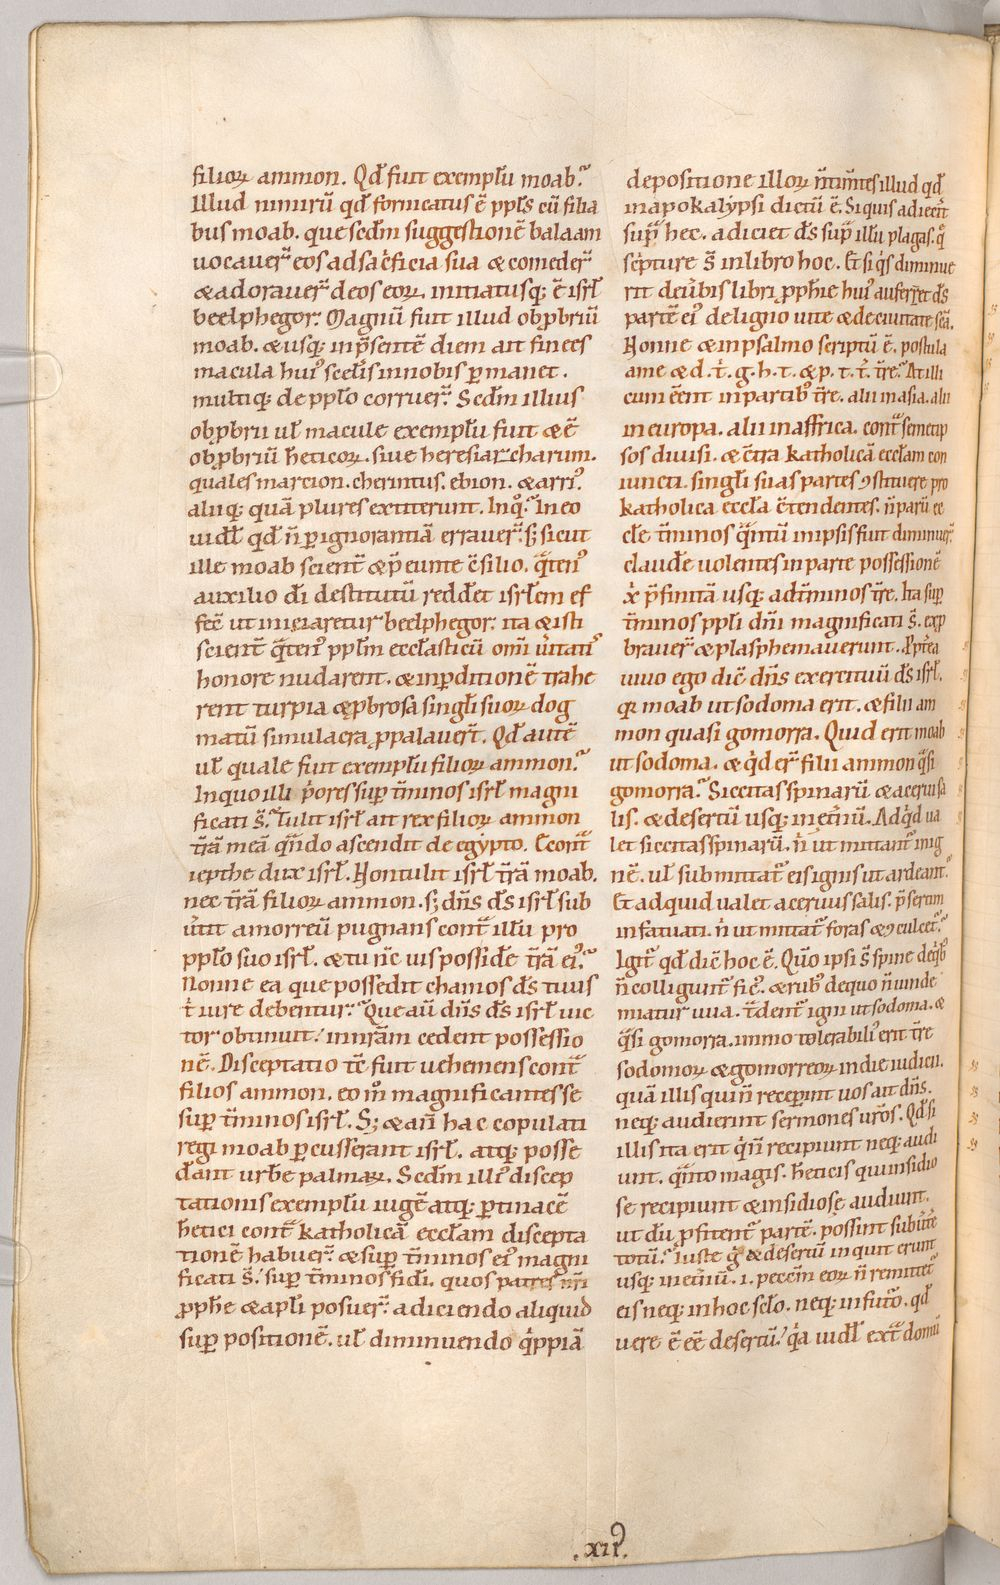 filioꝝ ammon. Qđ fuit exemplū moab?
Illud nimirū qđ fornicatus ē ppłs cū filia
bus moab. que scdm suggestionē balaam
uocauer̄ eos ad sac̄ficia sua & comeder̄
& adorauer̄ deos eoꝝ. initiatusq; ē isrł
beelphegor. Magnū fuit illud obꝓbriū
moab. & usq; in p̄sentē diem ait finees
macula hui᾽ scełis in nobis ꝑmanet.
multiq; de ppło corruer̄. Scdm illius
obꝓbrii uł macule exemplū fuit & ē
obꝓbriū heticoꝝ. siue heresiarcharum.
quales marcion. cherintus. ebion. & arri᾽.
aliiq; quā plures extiterunt. In qͦ? In eo
uidł qđ n̄ ꝑ ignorantiā errauer̄. s; sicut
ille moab scient̄ & p̄eunte c̄silio. q̄ten᾽
auxilio di destitutū redd̄et isrłem ef
fecē ut iniciaretur beelphegor. ita & isti
scient̄ q̄ten᾽ ppłm eccłasticū om̄i u̓itati᾽
honore nudarent. & in ꝑditionē trahe
rent turpia & ꝓbrosa singłi suoꝝ dog
matū simulacra ꝓpalauer̄t. Qđ autē
uł quale fuit exemplū filioꝝ ammon?
In quo illi p̓ores suꝑ t̄minos isrł magni
ficati s̄. Tulit isrł ait rex filioꝝ ammon
t̄rā meā q̄ndo ascendit de egypto. E cont̄
iepthe dux isrł. Non tulit isrł t̄rā moab.
nec t̄rā filioꝝ ammon. s; dn̄s d̄s isrł sub
u̓tit amorreū pugnans cont̄ illū pro
ppło suo isrł. & tu n̄c uis possid̄e t̄rā ei᾽?
Nonne ea que possedit chamos d̄s tuus
t̓ iure debentur? Que aū dn̄s d̄s isrł uic
tor obtinuit. in nr̄am cedent possessio
nē. Disceptatio t̄e fuit uehemens cont̄
filios ammon. eo mͦ magnificantes se
suꝑ t̄minos isrł. S; & aīi hac copulati
regi moab ꝑcusserant isrł. atq; posse
d̄ant urbē palmaꝝ. Scdm illi᾽ discep
tationis exemplū iugē atq; ꝑtinacē
hetici cont̄ katholicā eccłam discepta
tionē habuer̄. & suꝑ t̄minos ei᾽ magni
ficati s̄. suꝑ t̄minos fidi. quos patres nr̄i
ꝓphe & apłi posuer̄. adiciendo aliquid
suꝑ positionē. uł diminuendo q̓ppiā
depositione illoꝝ n̄ tim̄tes illud qđ
in apokalypsi dictū ē. Si quis adiecit̄
sup̄ hec. adiciet d̄s sup̄ illū plagas. q̄
sc̓pture s̄ in libro hoc. Et si q̓s diminue
rit deu̓bis libri ꝓph̄ie hui᾽ auferret d̄s
partē ei᾽ de ligno uite & de ciuitate sc̄a.
Nonne & in psalmo scriptū ē. postula
a me & d. t̓. g. h. t. & p. t. t̓. t̄re? At illi
cum ēent in partib᾽ t̄re. alii in asia. alii
in europa. alii in affrica. cont̄ semetip
sos diuisi. & c̄tra katholicā eccłam con
iuncti. singłi suas partes ꝯstituere pro
katholica eccła c̄tendentes. n̄ parū ec
cłe t̄minos q̄ntū in ipsis fuit diminuer̄.
claudē uolentes in parte possessionē
xi̓ p̄finitā usq; ad t̄minos t̄re. Ita suꝑ
t̄minos ppłi dn̄i magnificati s̄. exp
brauer̄ & plasphemauerunt. Ꝓpt̄ea
uiuo ego dic̄ dn̄s exercituū d̄s isrł.
qꝛ moab ut sodoma erit. & filii am
mon quasi gomorra. Quid erit moab
ut sodoma. & q̓d er̄ filii ammon q̄si
gomorra? Siccitas spinarū & acerui sa
lis. & desertū usq; inet̄nū. Ad q̓d ua
let siccitas spinarū. n̓ ut mittant̄ in ig
nē. uł submittat̄ eis ignis ut ardeant?
Et ad quid ualet aceruus salis. p̄sertim
infatuati. n̓ ut mittat̄ foras & ꝯculcet̄?
Igit̄ qđ dic̄ hoc ē. Quō ipsi s̄ spine deq̓b᾽
n̄ colligunt̄ fic᾽. & rub᾽ de quo n̄ uinde
miatur uua. t̄dent̄ igni ut sodoma. &
q̄si gomorra. immo tolerabili᾽ erit t̄re
sodomoꝝ & gomorreoꝝ in die iudicii.
quā illis qui n̄ receꝑint uos ait dn̄s.
neq; audierint sermones uros. Qđ si
illis ita erit q̓ n̄ recipiunt neq; audi
unt. q̄nto magis. heticis qui insidio
se recipiunt & insidiosę audiunt.
ut dū ꝓfitent̄ partē. possint subu̓te
totū? Iuste g̓ & desertū inquit erunt
usq; inet̄nū. i. peccm̄ eoꝝ n̄ remittet̄
eis neq; in hoc scło. neq; in futo̓. qđ
uere ē ēe desertū. q̓a uidł ext̄ domū
.xii᾽.